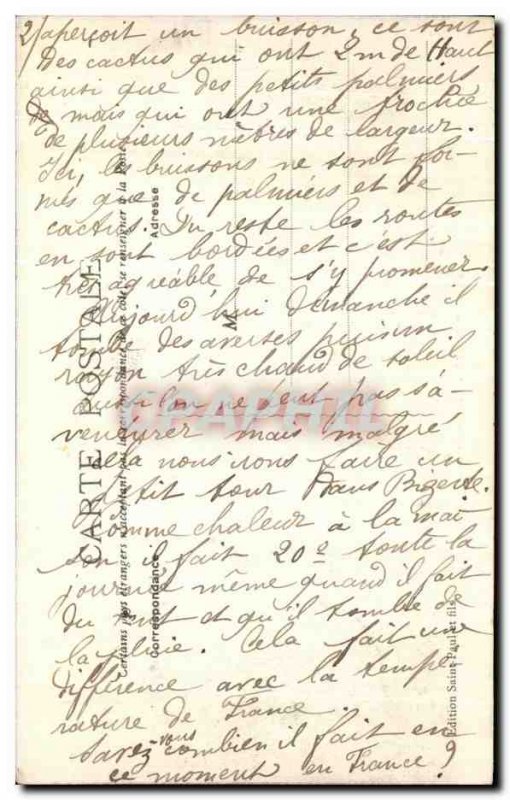 2/ aperçoit un buisson, ce sont
des cactus qui ont 2m de Haut
ainsi que des petits palmiers
mais qui ont une
de plusieurs mètres de largeur.
Ici, les buissons ne sont for-
més que de palmiers et de
cactus. Du reste les routes
en sont bordées et c'est
très agréable de s'y promener.
Aujourd'hui dimanche il
tombe des averses puis un
rayon très chaud de soleil
aussi l'on ne peut pas s'a-
venturer mais malgré
cela nous irons faire un
petit tour dans Bizerte.
Comme chaleur à la mai
son il fait 20° toute la
journée même quand il fait
du vent et qu'il tombe de
la pluie. Cela fait une
différence avec la tempé-
rature de France.
Savez-vous combien il fait en
ce moment en France?
CARTE POSTALE
Certains pays étrangers n'acceptant pas la correspondance de ce côté, se renseigner à la Poste
Correspondance
Adresse
M
Edition Saint-Paul et fils
CPAPHIL